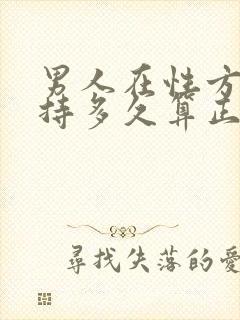 男人在性方
持多久算正
尋找失落的愛